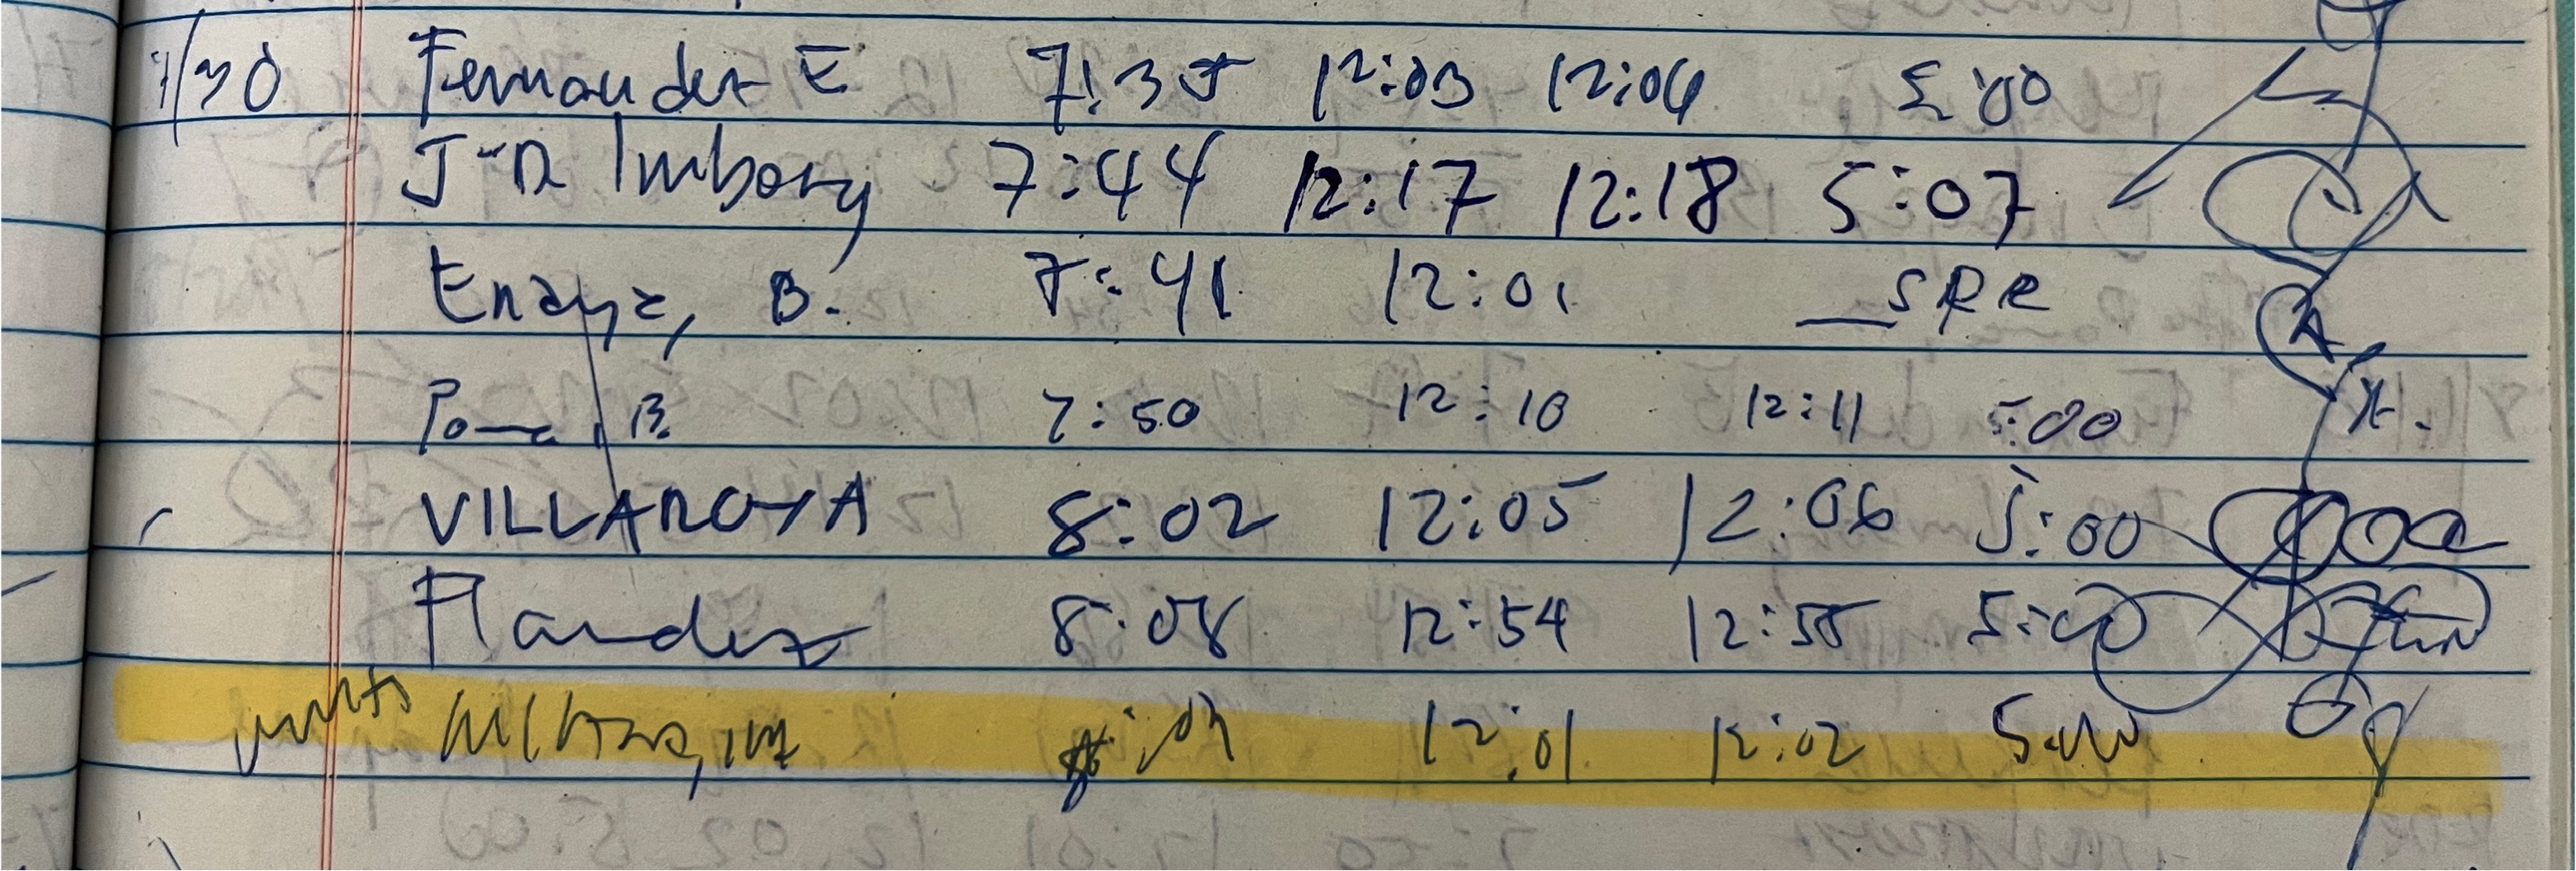 7/30 Fernandez E 7:35 12:03 12:04 5:00
J-R Imbong 7:44 12:17 12:18 5:07
Enaya, B. 7:41 12:01
B. 7:50 12:10 12:11 5:00
VILLAROYA 8:02 12:05 12:06 5:00
Flandez 8:08 12:54 12:55 5:00
12:01 12:02 5:00